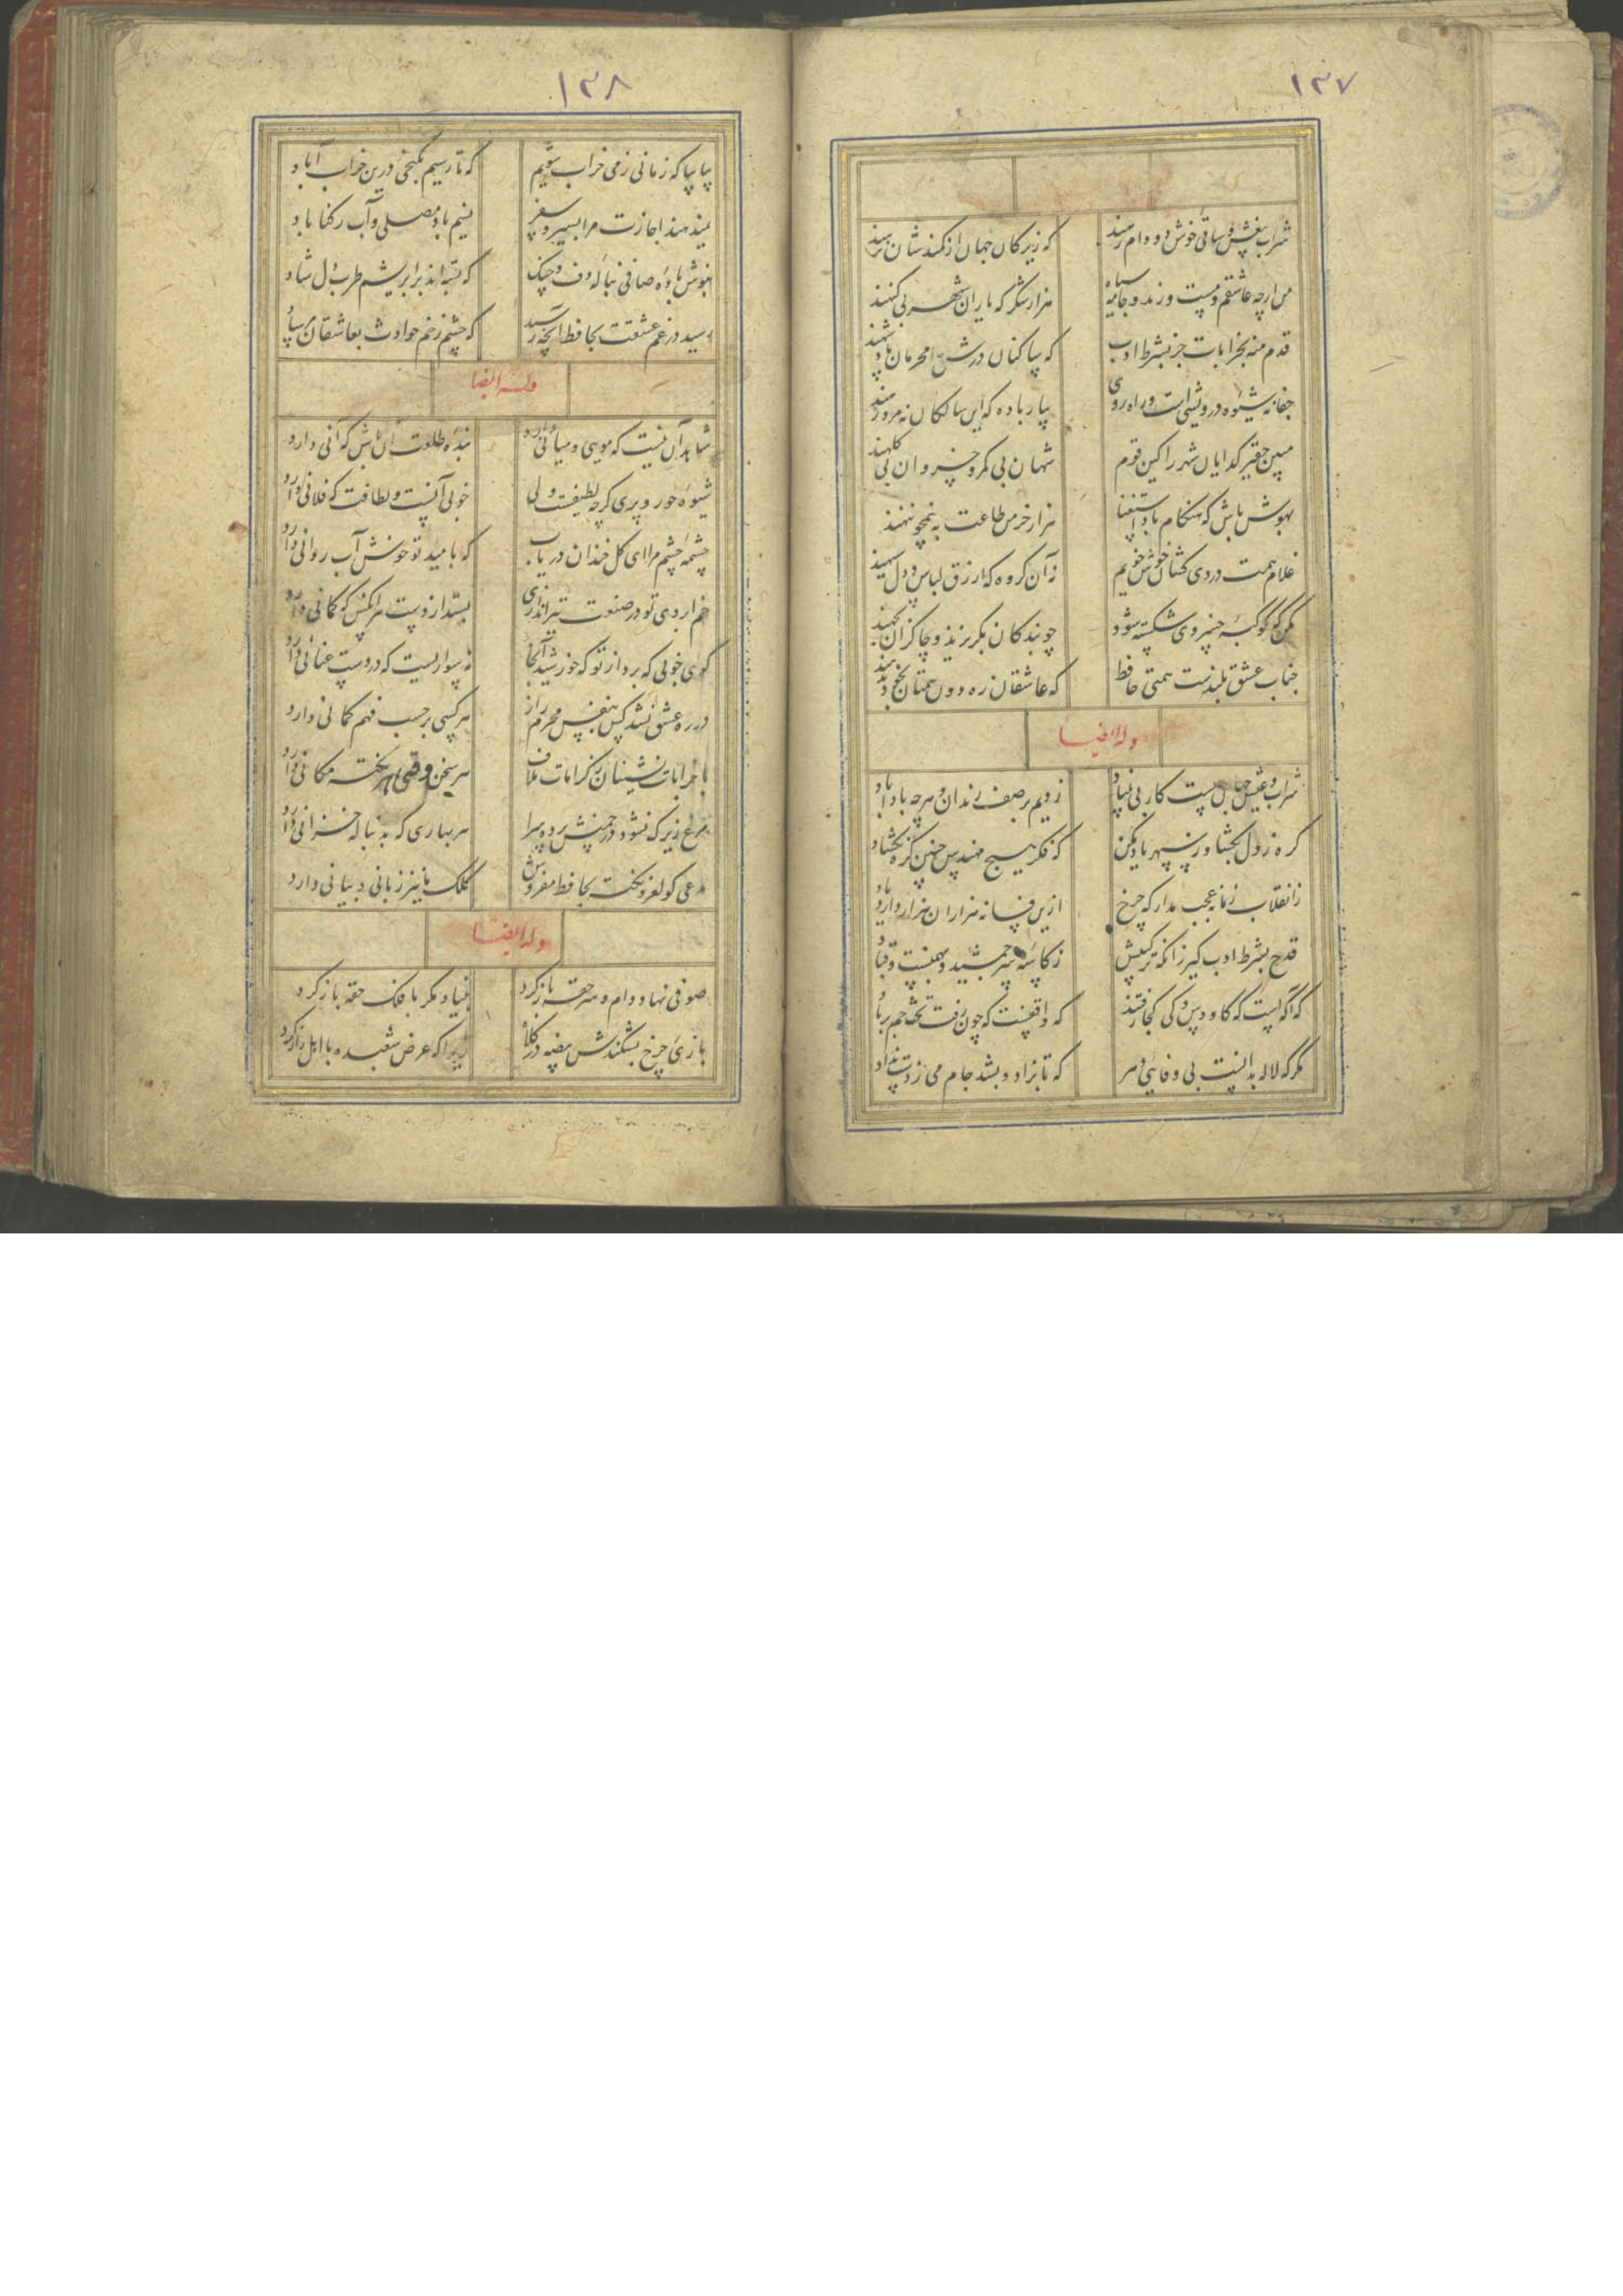 ۱۳۷
شراب بیغش و ساقی خوش دو دام رهند
که زیرکان جهان از کمندشان نرهند
من ارچه عاشقم و مست و رند و نامه سیاه
هزار شکر که یاران شهر بی کنهند
قدم منه بخرابات جز بشرط ادب
که ساکنان درش محرمان پادشهند
جفا نه شیوه درویشی است و راه روی
بیار باده که این سالکان نه مرد رهند
مبین حقیر کدایان شهر را کین قوم
شهان بی کمر و خسروان بی کلهند
بهوش باش که هنکام باد استغنا
هزار خرمن طاعت به نیم جو ننهند
غلام همت دردی کشان خوش خویم
نه آن کروه که ازرق لباس و دل سیهند
مکن که کوکبه خسروی شکسته شود
چو بندکان بکریزند و چاکران بجهند
جناب عشق بلندست همتی حافظ
که عاشقان ره دون همتان بخود ندهند
وله ایضا
شراب و عیش نهان چیست کار بی بنیاد
زدیم بر صف رندان و هرچه بادا باد
کره ز دل بکشا وز سپهر یاد مکن
که فکر هیچ مهندس چنین کره نکشاد
ز انقلاب زمانه عجب مدار که چرخ
ازین فسانه هزاران هزار دارد یاد
قدح بشرط ادب کیر زانکه ترکیبش
ز کاسه سر جمشید و بهمنست و قباد
که آکهست که کاوس و کی کجا رفتند
که واقفست که چون رفت تخت جم بر باد
مکر که لاله بدانست بی وفایی دهر
که تا بزاد و بشد جام می ز دست نداد
۱۳۸
بیا بیا که زمانی ز می خراب شویم
که تا رسیم بکنجی درین خراب آباد
نمیدهند اجازت مرا بسیر و سفر
نسیم باد مصلی و آب رکناباد
بنوش باده صافی بناله دف و چنک
که بسته اند بر ابریشم طرب دل شاد
رسید در غم عشقت بحافظ آنچه رسید
که چشم زخم حوادث بعاشقان مرساد
وله ایضا
شاهد آن نیست که مویی و میانی دارد
بنده طلعت آن باش که آنی دارد
شیوه حور و پری کرچه لطیفست ولی
خوبی آنست و لطافت که فلانی دارد
چشمه چشم مرا ای کل خندان دریاب
که بامید تو خوش آب روانی دارد
خم ابروی تو در صنعت تیراندازی
بستد از دست هر آنکس که کمانی دارد
کوی خوبی که برد از تو که خورشید آنجا
نه سواریست که در دست عنانی دارد
در ره عشق نشد کس بیقین محرم راز
هر کسی بر حسب فهم کمانی دارد
با خرابات نشینان ز کرامات ملاف
هر سخن وقتی و هر نکته مکانی دارد
مرغ زیرک نشود در چمنش پرده سرا
هر بهاری که بدنباله خزانی دارد
مدعی کو لغز و نکته بحافظ مفروش
کلک ما نیز زبانی و بیانی دارد
وله ایضا
صوفی نهاد دام و سر حقه باز کرد
بنیاد مکر با فلک حقه باز کرد
بازی چرخ بشکندش بیضه در کلاه
زیرا که عرض شعبده با اهل راز کرد